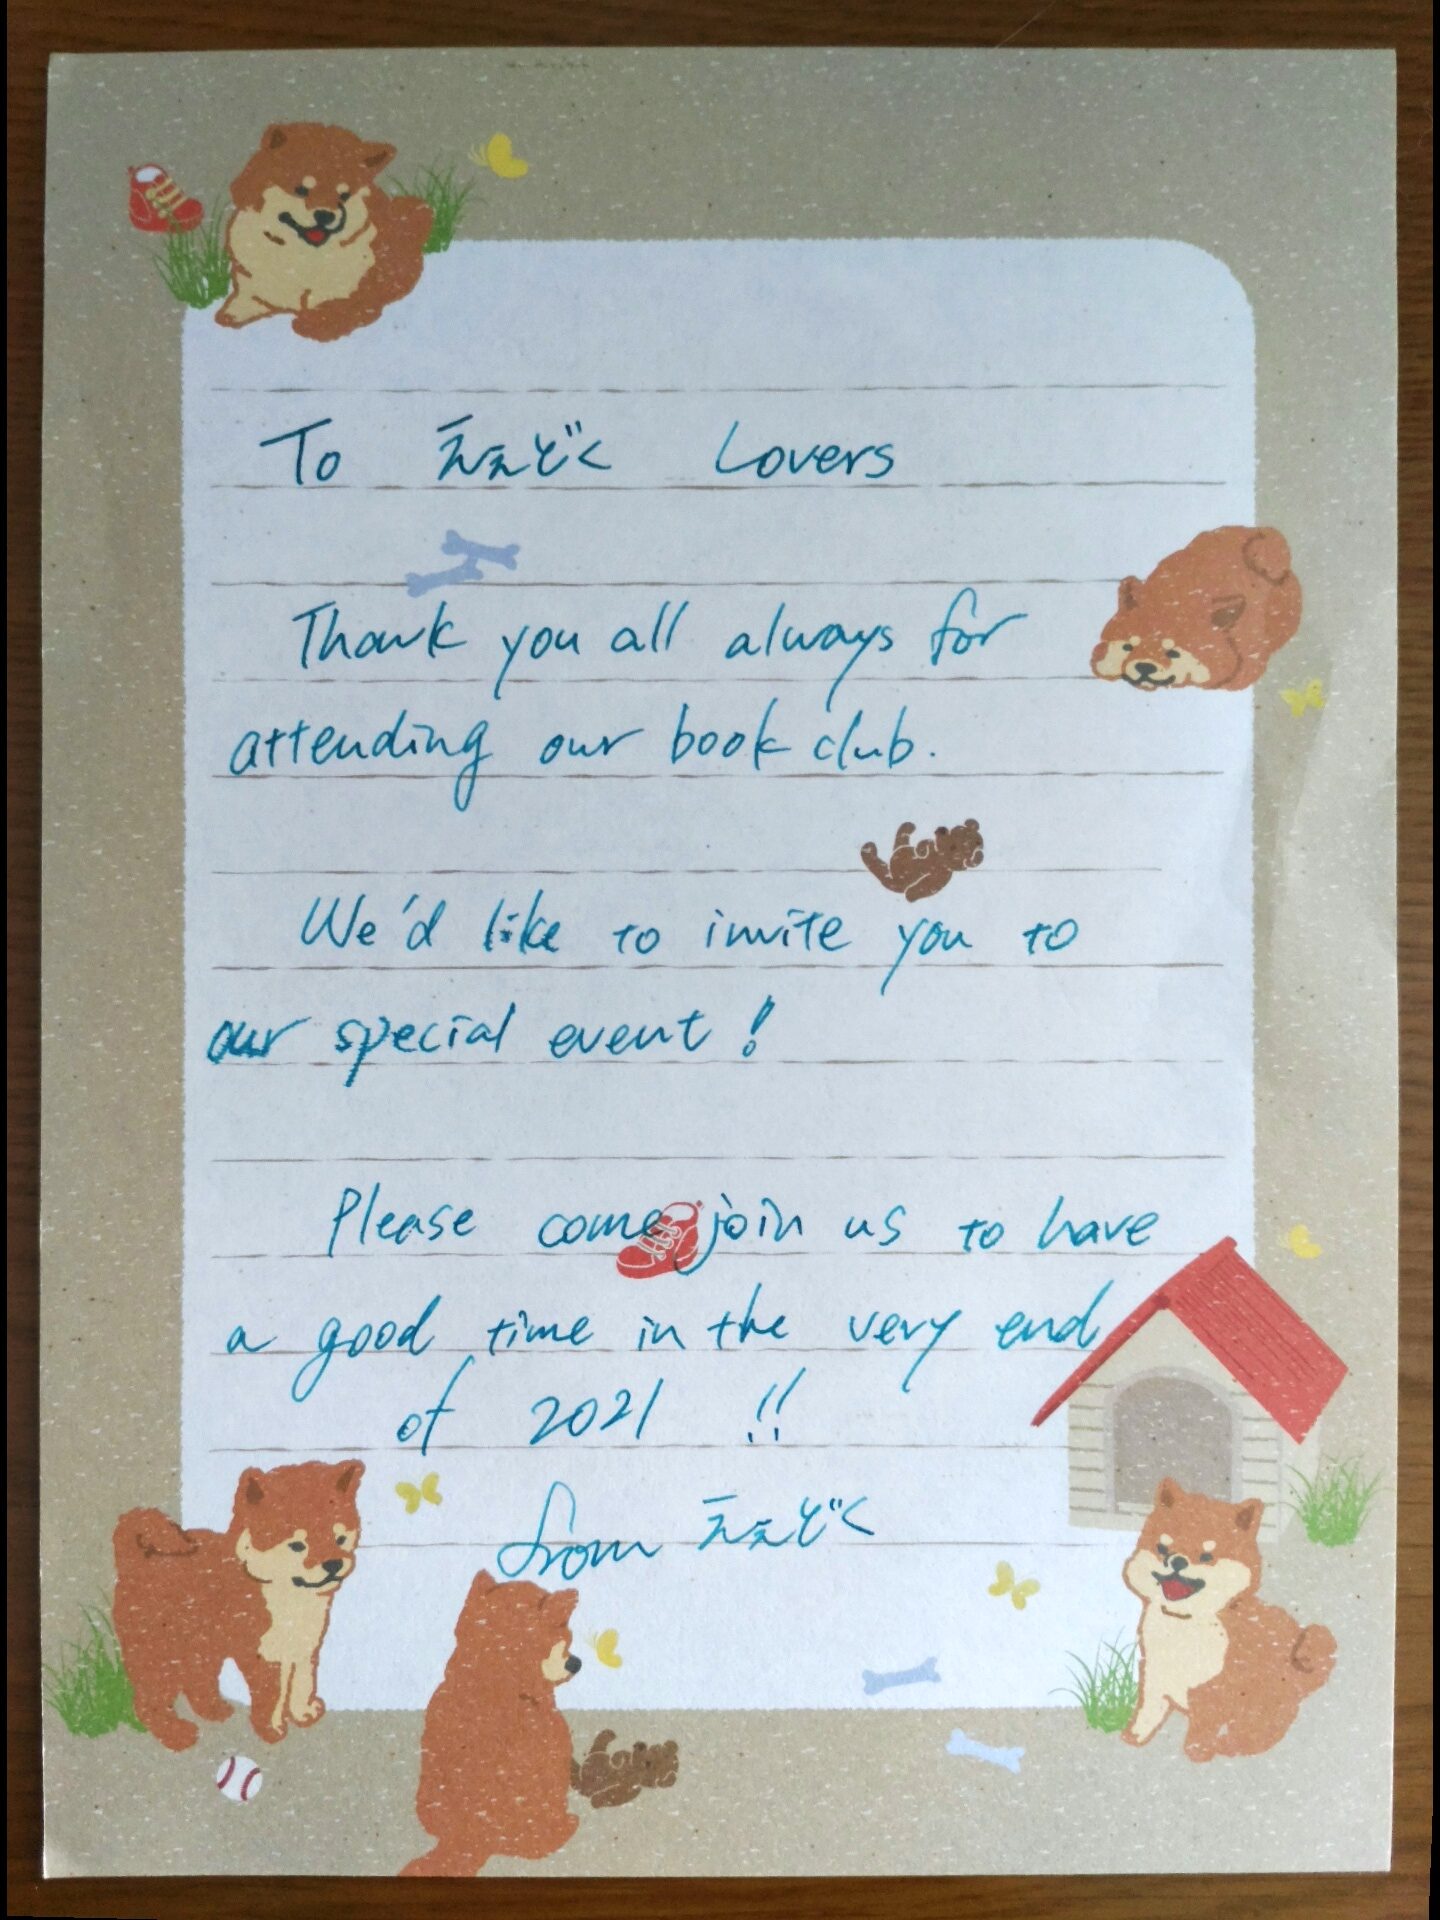 To ええどく Lovers
Thank you all always for
attending our book club.
We'd like to invite you to
our special event!
Please come join us to have
a good time in the very end
of 2021 !!
from ええどく